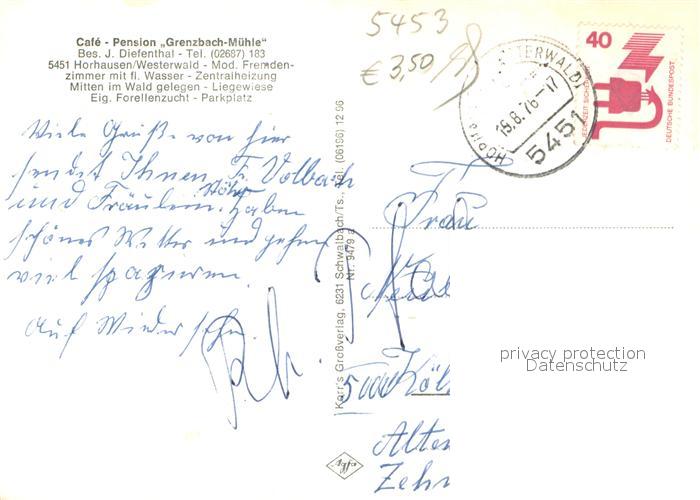 Café - Pension „Grenzbach-Mühle“
Bes. J. Diefenthal - Tel. (02687) 183
5451 Horhausen/Westerwald - Mod. Fremden-
zimmer mit fl. Wasser - Zentralheizung
Mitten im Wald gelegen - Liegewiese
Eig. Forellenzucht - Parkplatz
5453
€ 3,50
19.8.76-17
5451
40
JEDERZEIT SICHERHEIT
DEUTSCHE BUNDESPOST
Viele Grüße von hier
sendet Ihnen F. Volbach
und Fräulein
Haben
schönes Wetter und gehen
viel spazieren.
Auf Wieder sehn
Korr's Großverlag, 6231 Schwalbach/Ts., Tel. (06196) 12 56
Nr. 9479 a
Frau
5000 Köl
Alten
Zehn
privacy protection
Datenschutz